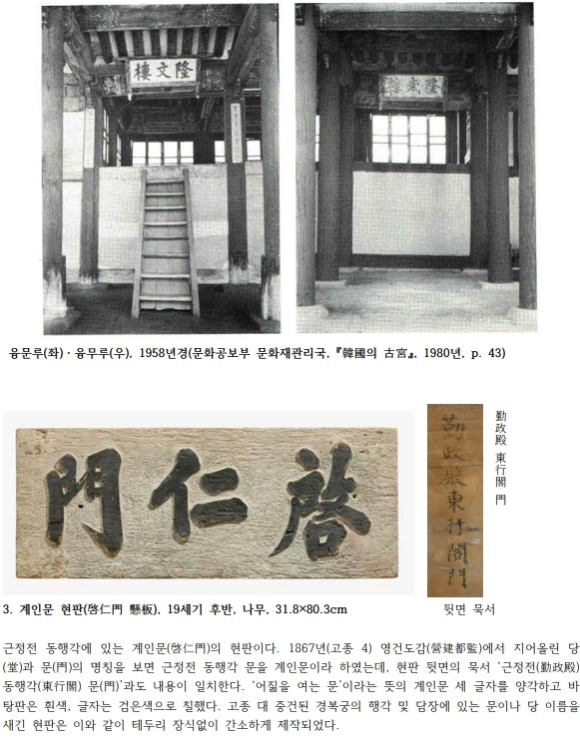 樓文隆
樓武隆
융문루(좌)·융무루(우), 1958년경(문화공보부 문화재관리국, 『韓國의 古宮』, 1980년, p. 43)
門仁啓
勤政殿東行閣門
勤政殿 東行閣 門
3. 계인문 현판(啓仁門 懸板), 19세기 후반, 나무, 31.8×80.3cm
뒷면 묵서
근정전 동행각에 있는 계인문(啓仁門)의 현판이다. 1867년(고종 4) 영건도감(營建都監)에서 지어올린 당
(堂)과 문(門)의 명칭을 보면 근정전 동행각 문을 계인문이라 하였는데, 현판 뒷면의 묵서 ‘근정전(勤政殿)
동행각(東行閣) 문(門)’과도 내용이 일치한다. ‘어짊을 여는 문’이라는 뜻의 계인문 세 글자를 양각하고 바
탕판은 흰색, 글자는 검은색으로 칠했다. 고종 대 중건된 경복궁의 행각 및 담장에 있는 문이나 당 이름을
새긴 현판은 이와 같이 테두리 장식없이 간소하게 제작되었다.